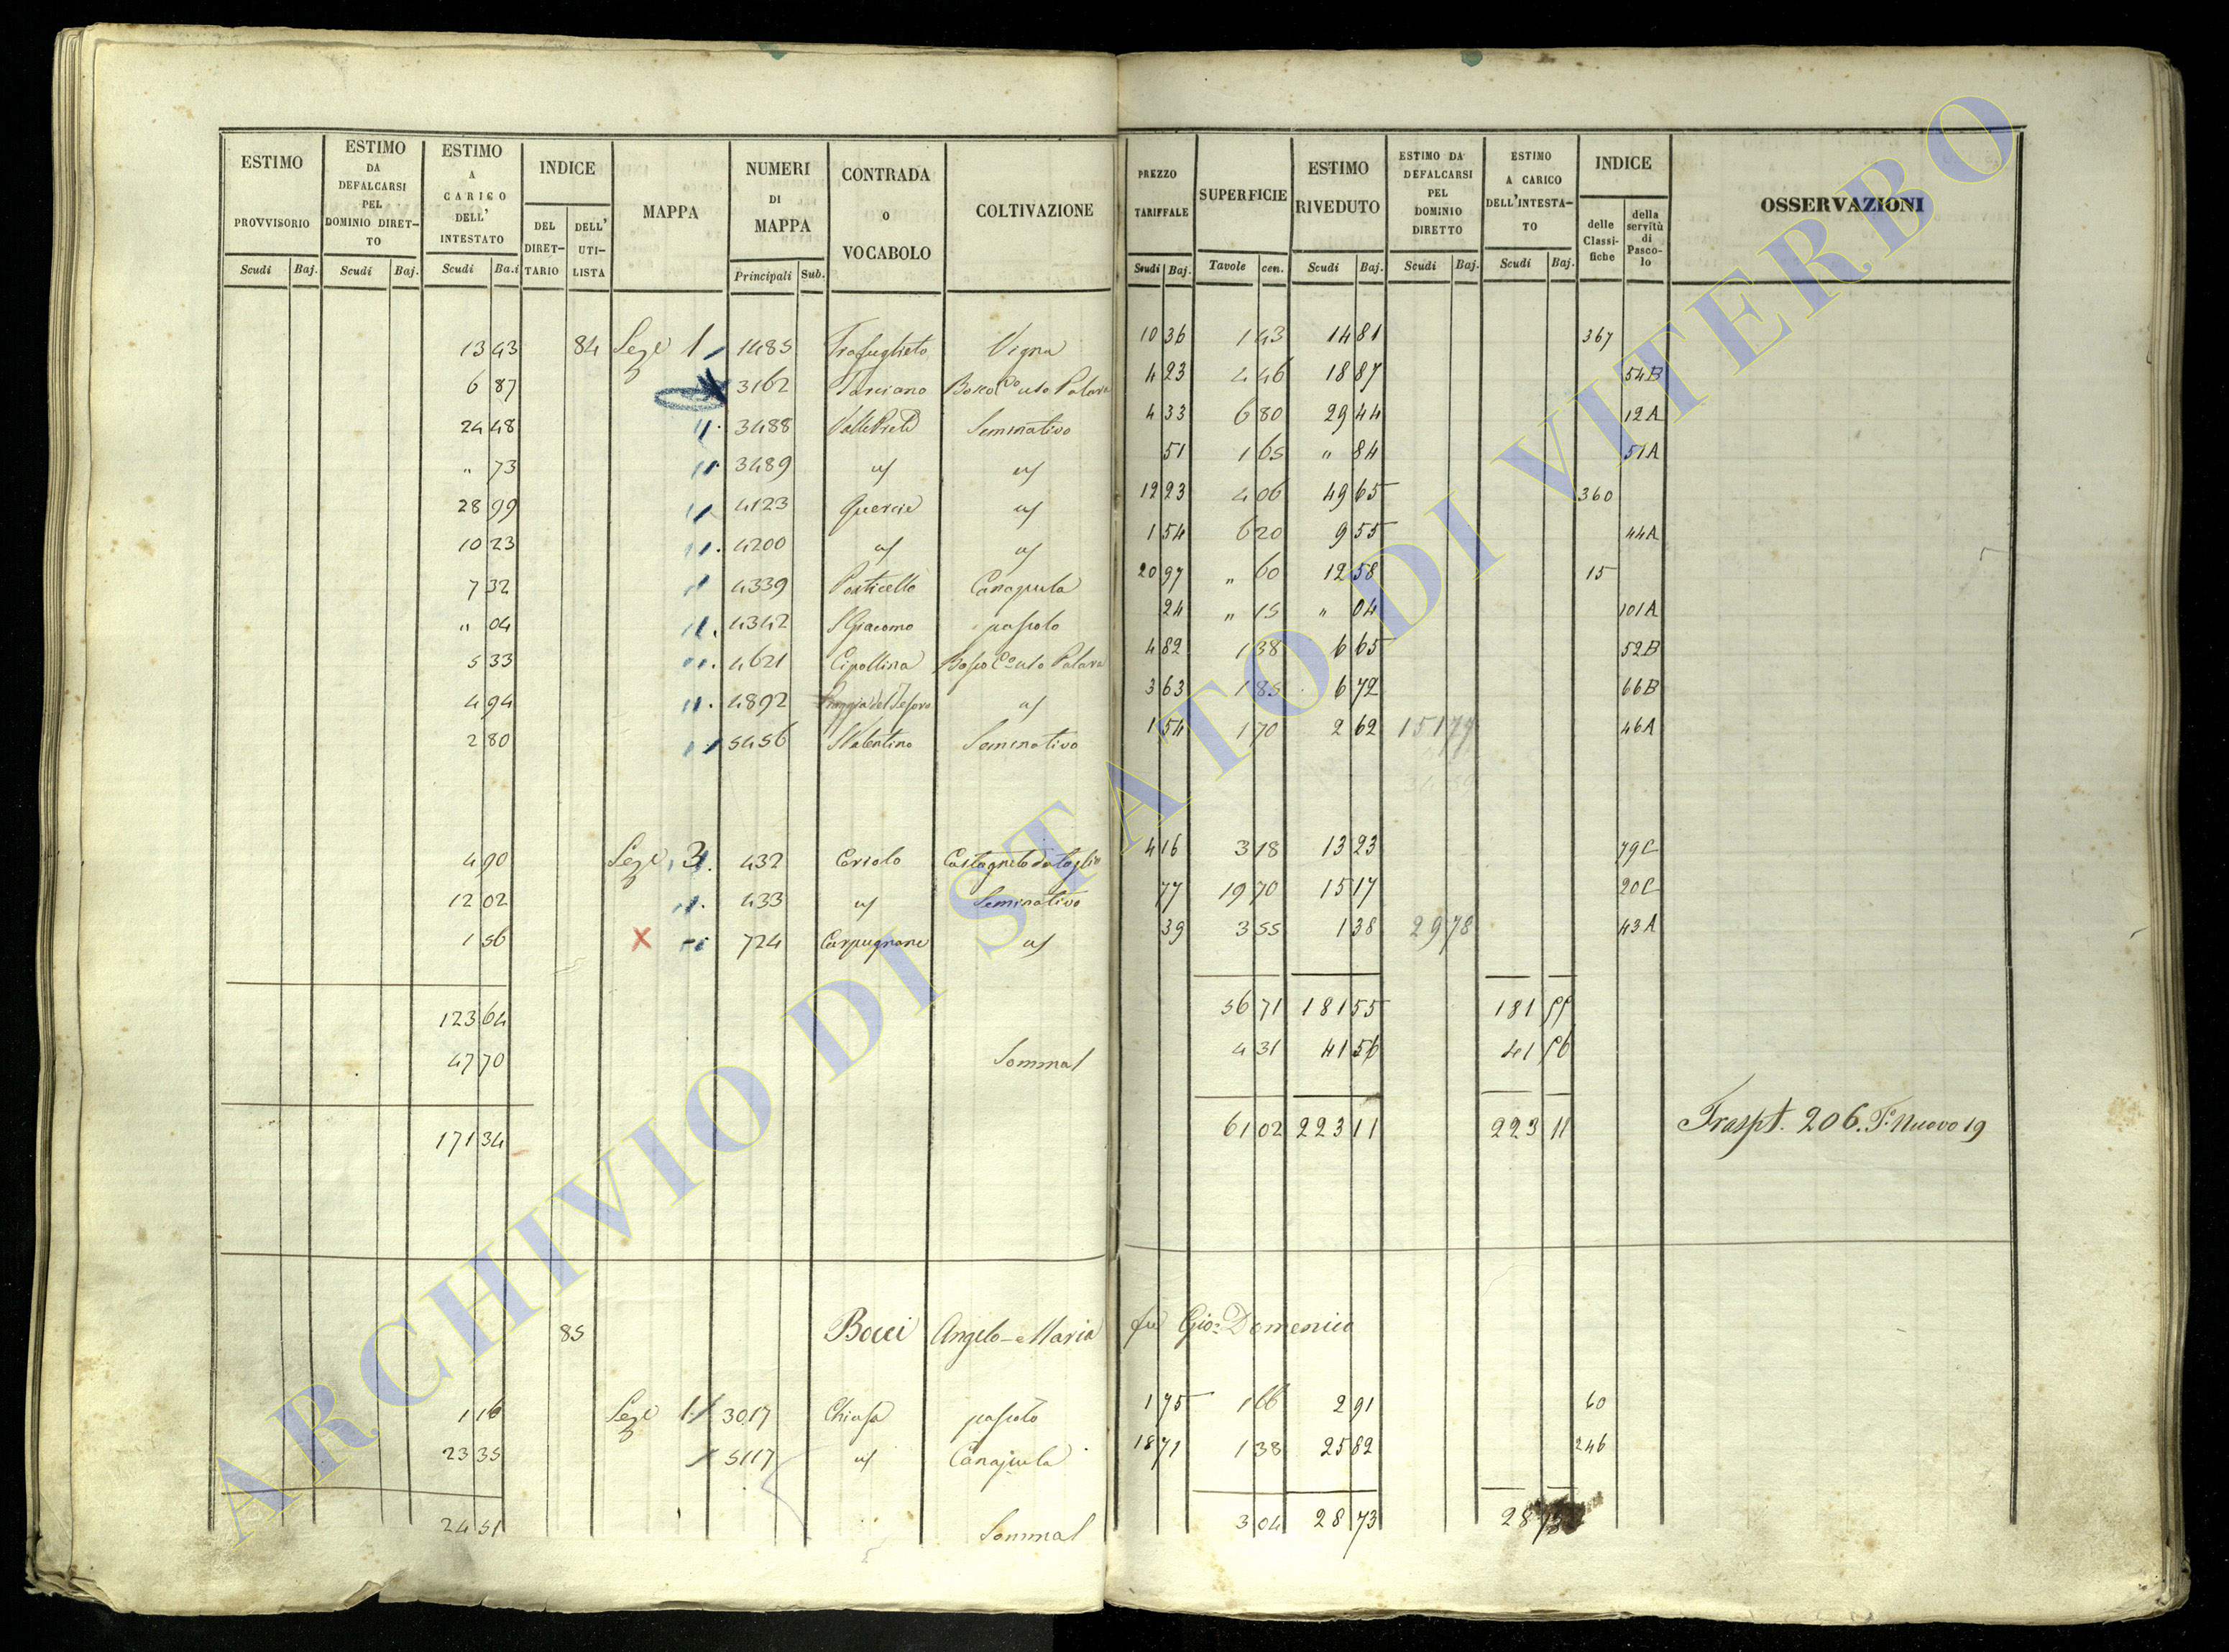 ESTIMO PROVVISORIO Scudi Baj.
ESTIMO DA DEFALCARSI PEL DOMINIO DIRET-TO Scudi Baj.
ESTIMO A CARICO DELL' INTESTATO Scudi Ba.i
INDICE DEL DIRET-TARIO DELL' UTI-LISTA
MAPPA
NUMERI DI MAPPA Principali Sub.
CONTRADA O VOCABOLO
COLTIVAZIONE
PREZZO TARIFFALE Scudi Baj.
SUPERFICIE Tavole cen.
ESTIMO RIVEDUTO Scudi Baj.
ESTIMO DA DEFALCARSI PEL DOMINIO DIRETTO Scudi Baj.
ESTIMO A CARICO DELL'INTESTA-TO Scudi Baj.
INDICE delle Classi-fiche della servitù di Pasco-lo
OSSERVAZIONI
13 43 84 Seze 1 1485 Vigna 10 36 1 43 14 81 367
6 87 3162 4 23 4 46 18 87 54B
24 48 3488 Seminativo 4 33 6 80 29 44 12A
" 73 3489 51 1 65 " 84 51A
28 99 4123 Quercie 12 23 4 06 49 65 360
10 23 4200 1 54 6 20 9 55 44A
7 32 4339 Ponticello Canapula 20 97 " 60 12 58 15
" 04 4342 S Giacomo pascolo 24 " 15 " 04 101A
5 33 4621 Cipollina 4 82 1 38 6 65 52B
4 94 4892 3 63 1 85 6 72 66B
2 80 5456 S Valentino Seminativo 1 54 1 70 2 62 151 77 46A
4 90 Seze 3 432 Ceriolo Castagneto da taglio 4 16 3 18 13 23 79C
12 02 433 Seminativo 77 19 70 15 17 20C
1 56 X 724 Carpugnane 39 3 55 1 38 29 78 43A
123 64 56 71 181 55 181 55
47 70 Somma 4 31 41 56 41 56
171 34 61 02 223 11 223 11 Traspt. 206. T. Nuovo 19
85 Bocci Angelo-Maria fu Gio: Domenico
1 16 Seze 1 3017 Chiusa pascolo 1 75 1 66 2 91 60
23 35 5117 Canapula 18 71 1 38 25 82 246
24 51 Somma 3 04 28 73 28
ARCHIVIO DI STATO DI VITERBO